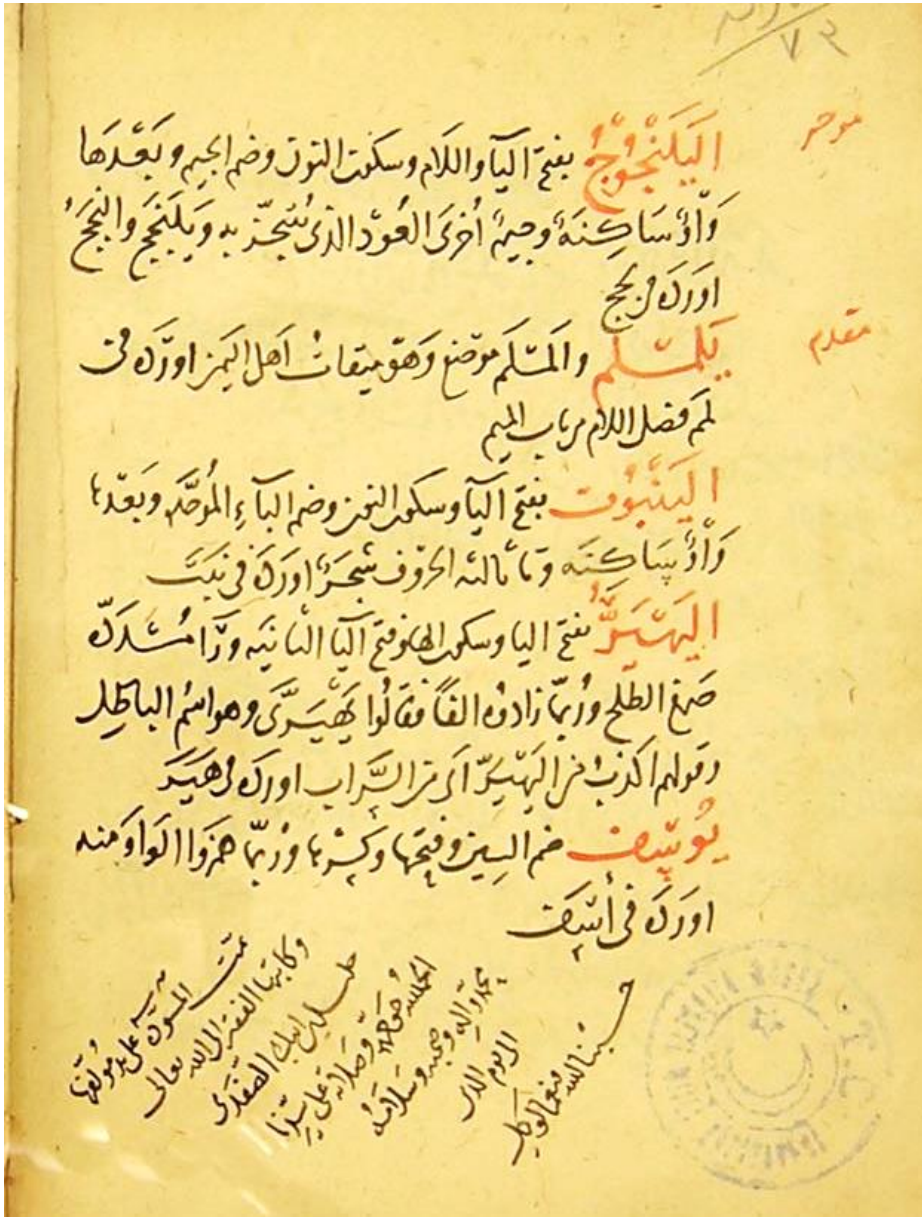 ٧٣
مؤخر
اليَلَنْجُوْجُ بفتح اليآ واللام وسكون النون وضم الجيم وبَعْدَها
وَاْوٌ سَاكِنَةٌ وجيمٌ اُخرَى العُوْد الذى يُتبخَّر به ويَلَنْجَج والنجَجُ
اورَدَه فى لجج
مقدم
يَلَمْلَم والَمْلَم موضع وَهو ميقاتُ اَهل اليَمَن اورَدَه فى
لمَم فصل اللام من باب الميم
اليَنْبُوت بفتح اليآ وسكون النون وضم البآءِ المُوَحَّده وبَعدها
وَاْوٌ سَاكِنَه وتا ثالثه الحروف شجَرٌ اورَدَه فى نبَتَ
اليَهْيَرُّ بفتح اليا وسكون الها وفتح اليآ الثانيه ورَّا مُشدَدَّه
صَمغ الطلح ورُبّما زادوُه الفاً فقالُوا يَهْيَرَّى وهو اسْمُ البَاطِل
وقولهم اكذبُ من اليَهْيَرّ اَى من السَّرَاب اورَدَه فى هَيَرَ
يُوسُِف ضم السين وفتحها وكسرها ورُبّما همَزوُا الوَاوَ منه
اورَدَه فى أسِفَ
تمت المسوّدَه على يد مؤلّفها
وكاتبها الفقير الى الله تعالى
خليل بن ايبك الصَّفَدى
الحمدُ لله حق حمده وصَلاتُه عَلى سيّدنا
محمدٍ وآلِه وصَحبه وسَلامُه
الى يوم الدين
حسبنا الله ونعم الوكيل
T. C.